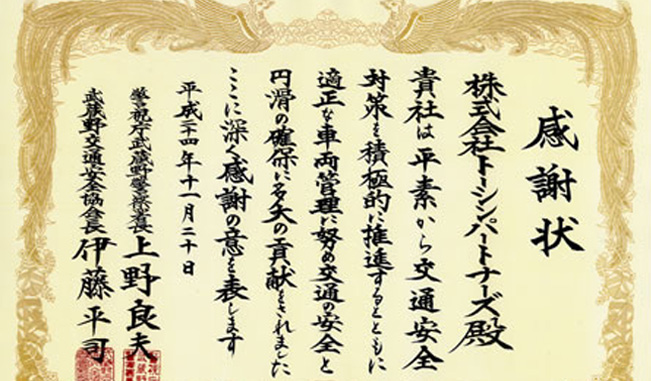 感謝状
株式会社トーシンパートナーズ殿
貴社は平素から交通安全
対策を積極的に推進するとともに
適正な車両管理に努め交通の安全と
円滑の確保に多大の貢献をされました
ここに深く感謝の意を表します
平成二十四年十一月二十日
警視庁武蔵野警察署長 上野良夫
武蔵野交通安全協会長 伊藤平司